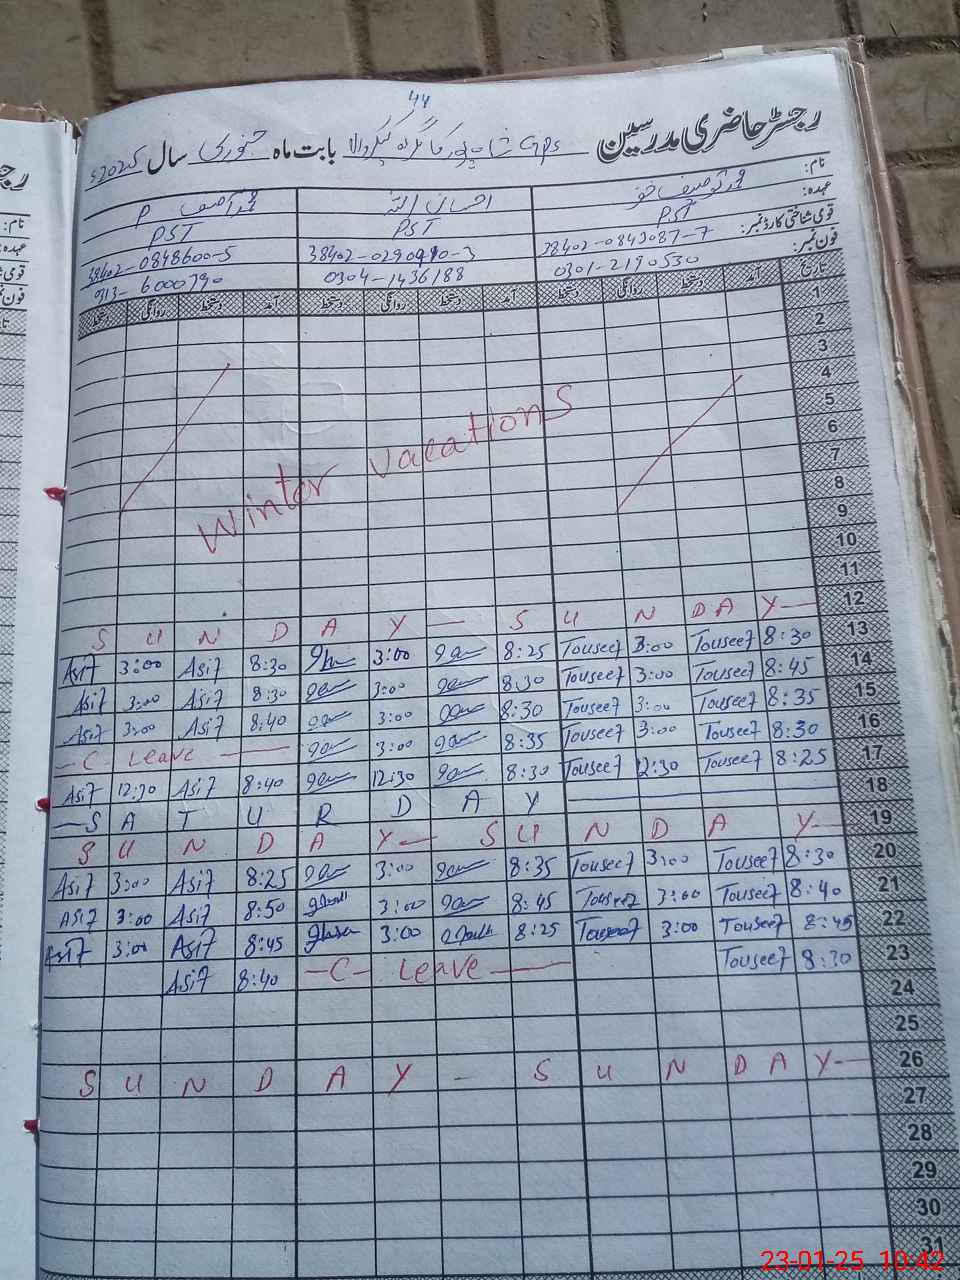 44
رجسٹر حاضری مدرسین GPS بابت ماہ جنوری سال 2025ء
نام: محمد توصیف احسان اللہ محمد آصف P
عہدہ: PST PST PST
قومی شناختی کارڈ نمبر: 38402-0843087-7 38402-0290910-3 38402-0848600-5
فون نمبر: 0301-2190530 0304-1436188 0313-6000790
تاریخ آمد دستخط روانگی دستخط آمد دستخط روانگی دستخط آمد دستخط روانگی دستخط
1
2
3
4
5
6
7
Winter Vacations
8
9
10
11
12 S U N D A Y — S U N D A Y —
13 Asif 3:00 Asif 8:30 3:00 8:25 Touseef 3:00 Touseef 8:30
14 Asif 3:00 Asif 8:30 3:00 8:30 Touseef 3:00 Touseef 8:45
15 Asif 3:00 Asif 8:40 3:00 8:30 Touseef 3:00 Touseef 8:35
16 — C Leave — 3:00 8:35 Touseef 3:00 Touseef 8:30
17 Asif 12:30 Asif 8:40 12:30 8:30 Touseef 12:30 Touseef 8:25
18 — S A T U R D A Y —
19 S U N D A Y — S U N D A Y —
20 Asif 3:00 Asif 8:25 3:00 8:35 Touseef 3:00 Touseef 8:30
21 Asif 3:00 Asif 8:50 3:00 8:45 Touseef 3:00 Touseef 8:40
22 Asif 3:00 Asif 8:45 3:00 8:25 Touseef 3:00 Touseef 8:45
23 Asif 8:40 — C - Leave — Touseef 8:30
24
25
26 S U N D A Y - S U N D A Y —
27
28
29
30
31
23-01-25 10:42